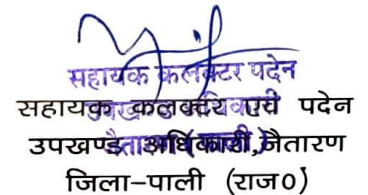 सहायक कलक्टर पदेन
सहायक कलक्टर एवं पदेन
उपखण्ड अधिकारी, जैतारण
जिला–पाली (राज0)